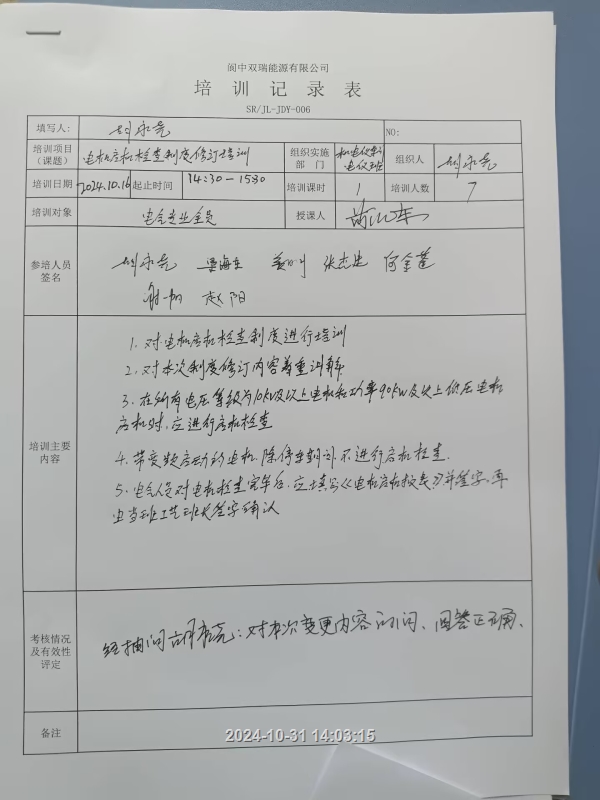 阆中双瑞能源有限公司
培训记录表
SR/JL-JDY-006
填写人： 刘永亮 NO:
培训项目（课题） 电机启机检查制度修订培训 组织实施部 门 机电仪车间电仪班 组织人 刘永亮
培训日期 2024.10.16 起止时间 14:30—1530 培训课时 1 培训人数 7
培训对象 电气专业全员 授课人
参培人员签名 刘永亮 梁海东 姜川 张杰忠 何金莲
赵阳
培训主要内容
1、对电机启机检查制度进行培训
2、对本次制度修订内容着重讲解
3、在所有电压等级为10kV及以上电机和功率90kw及以上低压电机
启机时，应进行启机检查
4、带变频启动的电机，除停车期间，不进行启机检查.
5、电气人员对电机检查完毕后，应填写《电机启机报表》并签字，再
由当班工艺班长签字确认
考核情况及有效性评定
经抽问：对本次变更内容询问、回答正确、
备注
2024-10-31 14:03:15